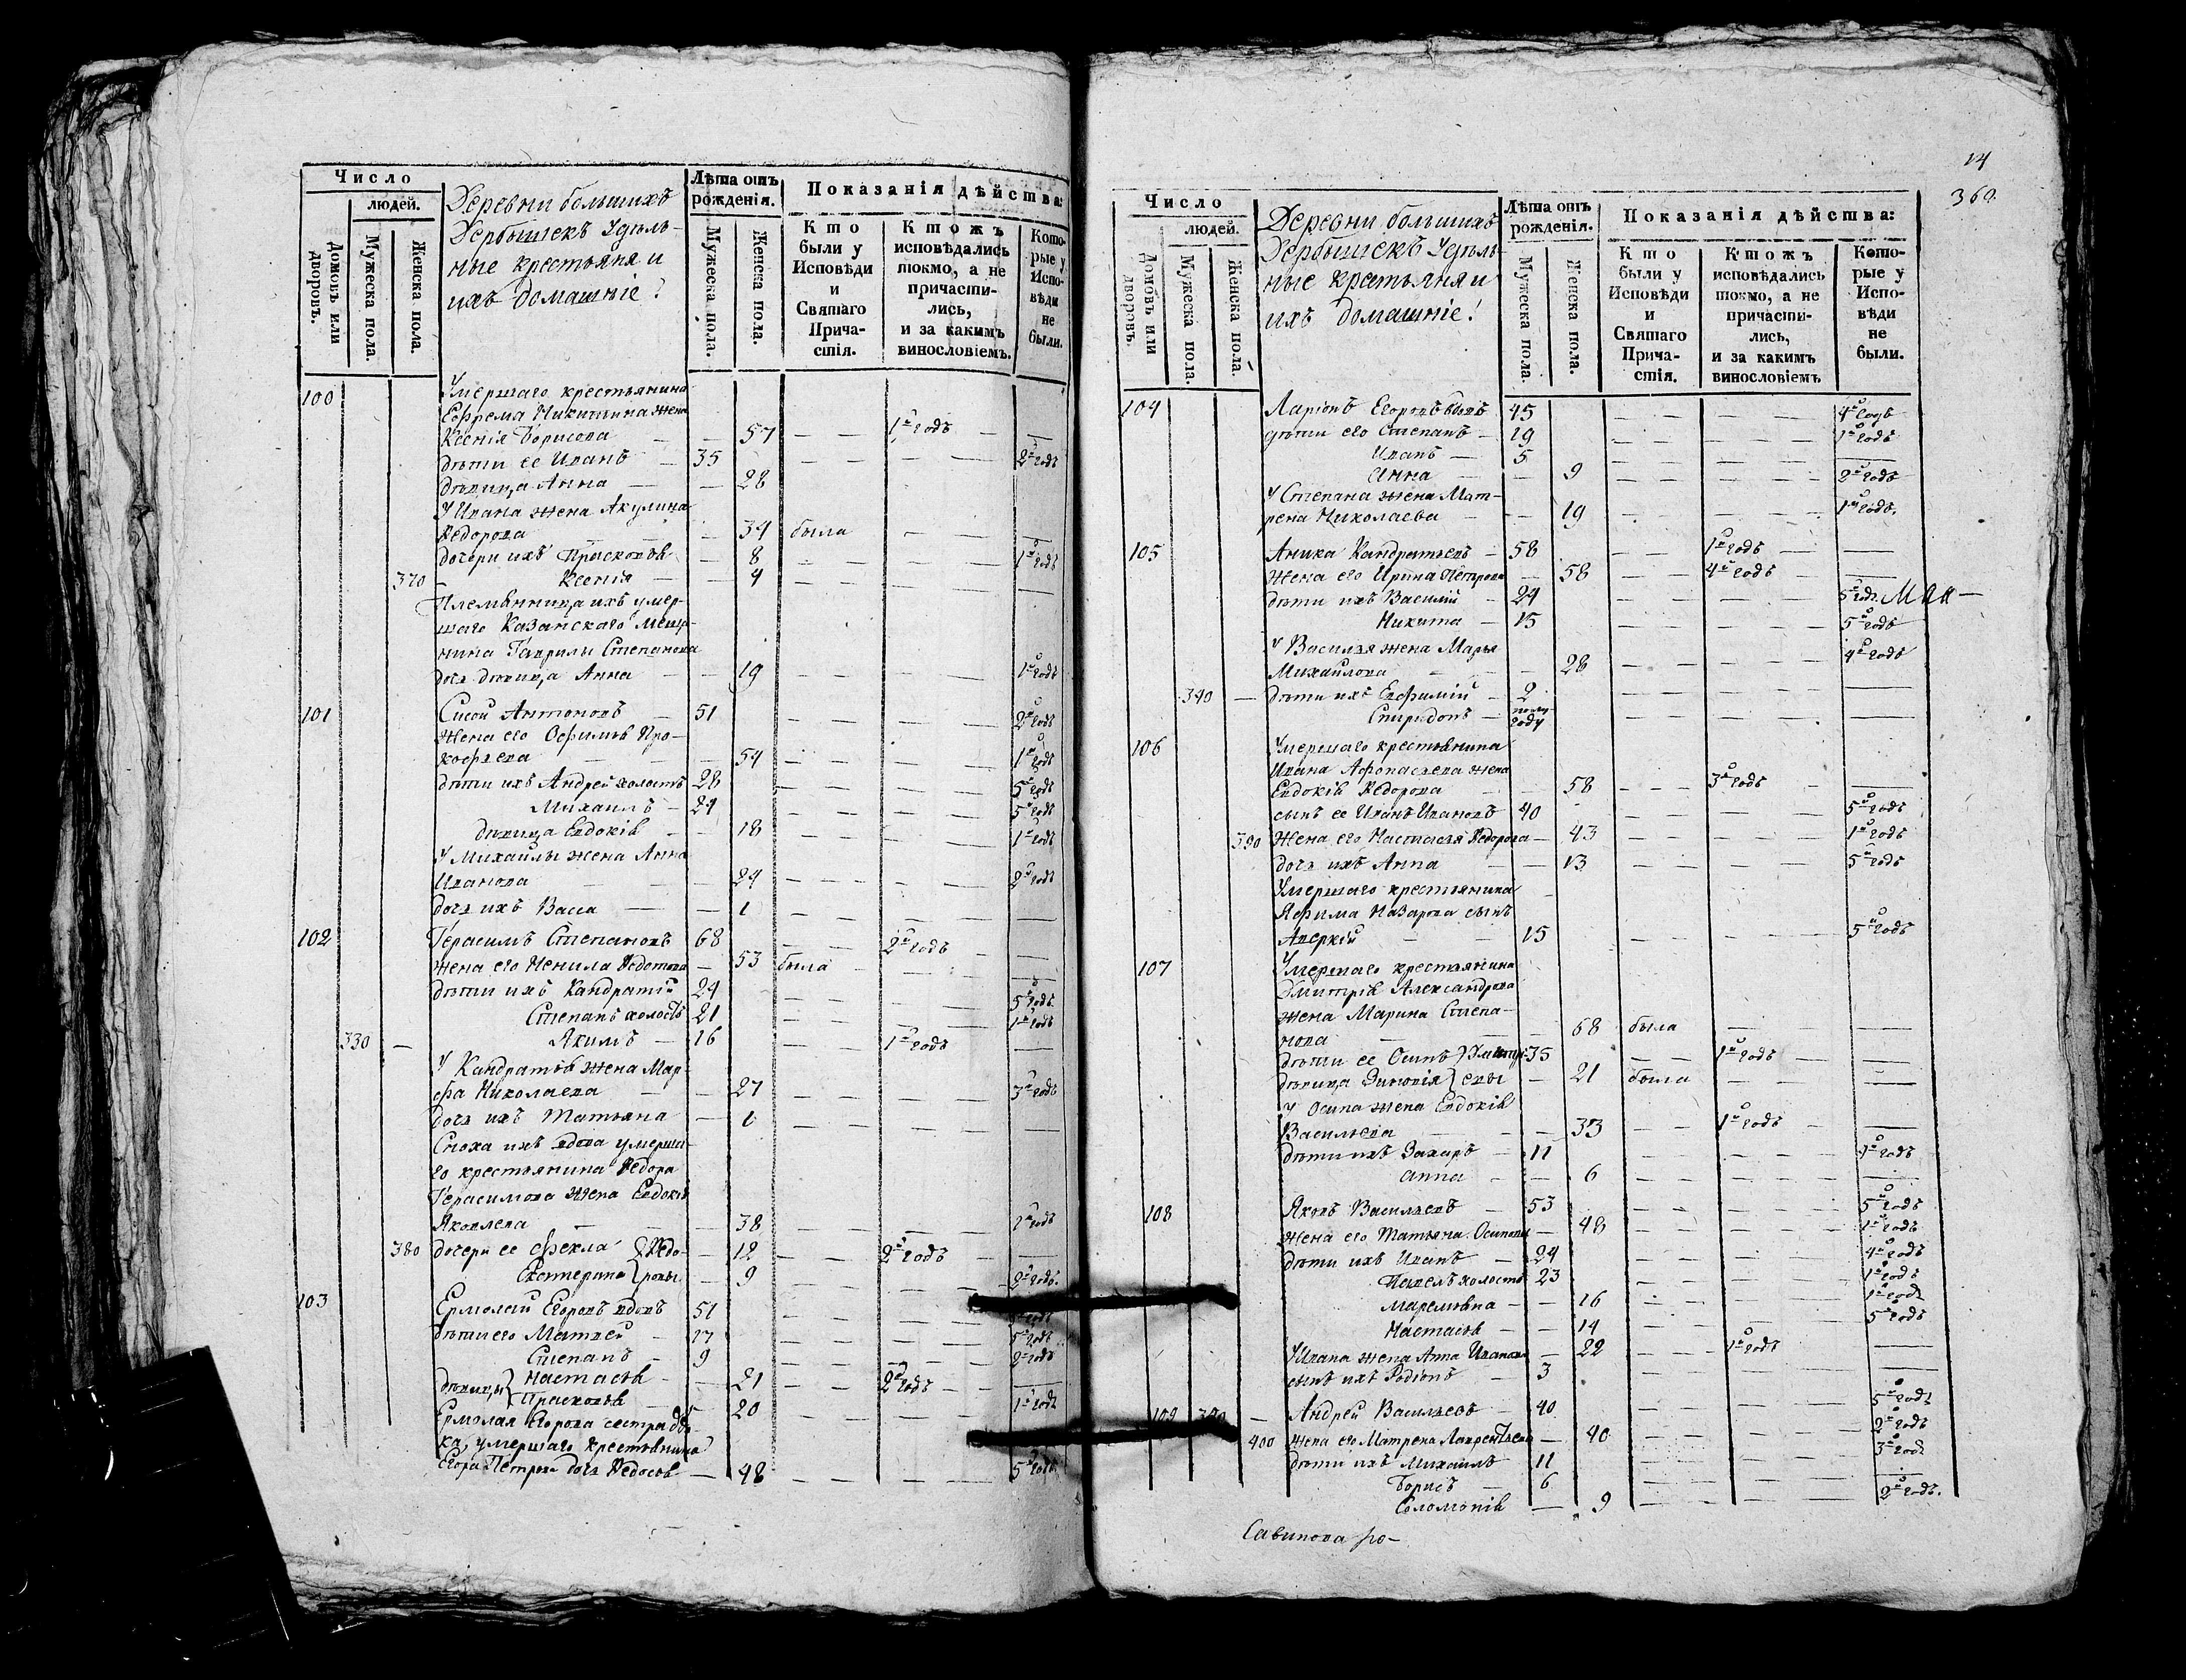 Число
людей.
Домовъ или дворовъ.
Мужеска пола.
Женска пола.
Деревни большихъ
Дербышекъ Удѣль-
ные крестьяня и
ихъ домашніе:
Лѣта отъ рожденія.
Мужеска пола.
Женска пола.
Показанія дѣйства:
Кто были у Исповѣди и Святаго Прича-стія.
Ктожъ исповѣдались токмо, а не причасти-лись, и за какимъ винословіемъ.
Кото-рые у Испо-вѣди не были.
100 Умершаго крестьянина
Ефрема Никитина жена
Ксенія Борисова — — 57 — — 1й годъ —
дѣти ее Иванъ — 35 — — — — 2й годъ
дѣвица Анна — — 28
У Ивана жена Акулина
Ѳедорова — 34 была — — —
дочери ихъ Прасковья — 8 — — — — 1й годъ
370 — Ксенія — — 4 — — — — —
Племянница ихъ умер-
шаго Казанскаго Мещя-
нина Гаврилы Степанова
дочь дѣвица Анна — — 19 1й годъ
101 Сысой Антоновъ — 51 — — — — 2й годъ
жена его Ефимья Про-
кофьева — — — 54 — — — — 1й годъ
дѣти ихъ Андрей холостъ 28 — — — — 5й годъ
Михаилъ — 24 — — — — 5й годъ
дѣвица Евдокія — — 18 — — — — 1й годъ
У Михайлы жена Анна
Иванова — — — 24 — — — — 2й годъ
дочь ихъ Васса — — 1 — — — — —
102 Герасимъ Степановъ 68 — — 2й годъ — —
жена его Ненила Ѳедотова — 53 была — — —
дѣти ихъ Кандратій 24 — — — — 5й годъ
Степанъ холостъ 21 — — — — 1й годъ
330 — Якимъ — 16 — — 1й годъ —
У Кандратья жена Мар-
фа Николаева — — 27 3й годъ
дочь ихъ Татьяна — 1 — — — — —
Сноха ихъ вдова умерша-
го крестьянина Ѳедора
Герасимова жена Евдокія
Яковлева — — — 38 — — — — 2й годъ
380 дочери ее Фекла } Ѳедо- — 12 — — 2й годъ —
Екатерина } ровы — 9 — — — — 2й годъ.
103 Ермолай Егоровъ вдовъ 51 — — — —
дѣти его Матвей — 17 — — — — 5й годъ
Степанъ — 9 — — — — 2й годъ
дѣвицы } Настасья — — 21 — — 2й годъ — — —
Прасковья — 20 — — — — 1й годъ
Ермолая Егорова сестра дѣв-
ка, умершаго крестьянина
Егора Петрова дочь Ѳедосья — 48 — — — — 5й годъ
14
360.
Число
людей.
Домовъ или дворовъ.
Мужеска пола.
Женска пола.
Деревни большихъ
Дербышекъ Удѣль-
ные крестьяня и
ихъ домашніе!
Лѣта отъ рожденія.
Мужеска пола.
Женска пола.
Показанія дѣйства:
Кто были у Исповѣди и Святаго Прича-стія.
Ктожъ исповѣдались токмо, а не причасти-лись, и за какимъ винословіемъ
Кото-рые у Испо-вѣди не были.
104 Ларіонъ Егоровъ вдовъ 45 — — — — 4й годъ
дѣти его Степанъ — 19 — — — — 1й годъ
Иванъ — 5 — — — — —
Анна — — 9 — — — — 2й годъ
У Степана жена Мат-
рена Николаева — — 19 — — — — 1й годъ.
105 Аника Кандратьевъ — 58 1й годъ — —
жена его Ирина Петрова — 58 — — 4й годъ — —
дѣти ихъ Василій — 24 — — — — 5й годъ.
Никита — 15 — — — — 5й годъ
У Василья жена Марья
Михайлова — 28 — — — — 4й годъ
340 — дѣти ихъ Евфимій — 2 — — — — —
Спиридонъ — полу году — — — — —
106 Умершаго крестьянина
Ивана Афонасьева жена
Евдокія Ѳедорова — — 58 — — 3й годъ — —
сынъ ее Иванъ Ивановъ 40 — — — — 5й годъ
390 жена его Настасья Ѳедорова — 43 — — — — 1й годъ
дочь ихъ Анна — — 13 — — — — 5й годъ
Умершаго крестьянина
Яфима Назарова сынъ
Аверкій — — 15 — — — — 5й годъ
107 Умершаго крестьянина
Дмитрія Александрова
жена Марина Степа-
нова — — 68 была — —
дѣти ее Осипъ } Дмитр- 35 — — 1й годъ — —
дѣвица Зиновія } евы — 21 была — — —
У Осипа жена Евдокія
Васильева — — — 33 — — 1й годъ — —
дѣти ихъ Захаръ — 11 — — — — 1й годъ
Анна — — 6 — — — — —
108 Яковъ Васильевъ — 53 — — — — 5й годъ
жена его Татьяна Осипова — 48 — — — — 1й годъ
дѣти ихъ Иванъ — 24 — — — — 4й годъ
Павелъ холостъ 23 — — — — 1й годъ
Маремьяна — — 16 — — — — 1й годъ
Настасья — — 14 — — — — 5й годъ
У Ивана жена Анна Иванова — 22 — — 1й годъ —
сынъ ихъ Родіонъ — 3 — — — — —
109 Андрей Васильевъ — 40 — — — — 5й годъ
400 жена его Матрена Лаврентьева — 40 — — — — 2й годъ
дѣти ихъ Михаилъ 11 — — — — 3й годъ
Борисъ — 6 — — — — —
Соломонія — 9 — — — — 2й годъ.
Савинова